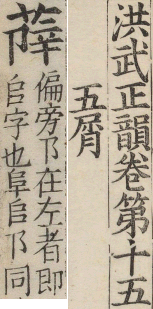 洪武正韻卷第十五
五屑
薛
偏旁阝在左者即
𨸏字也阜𨸏阝同